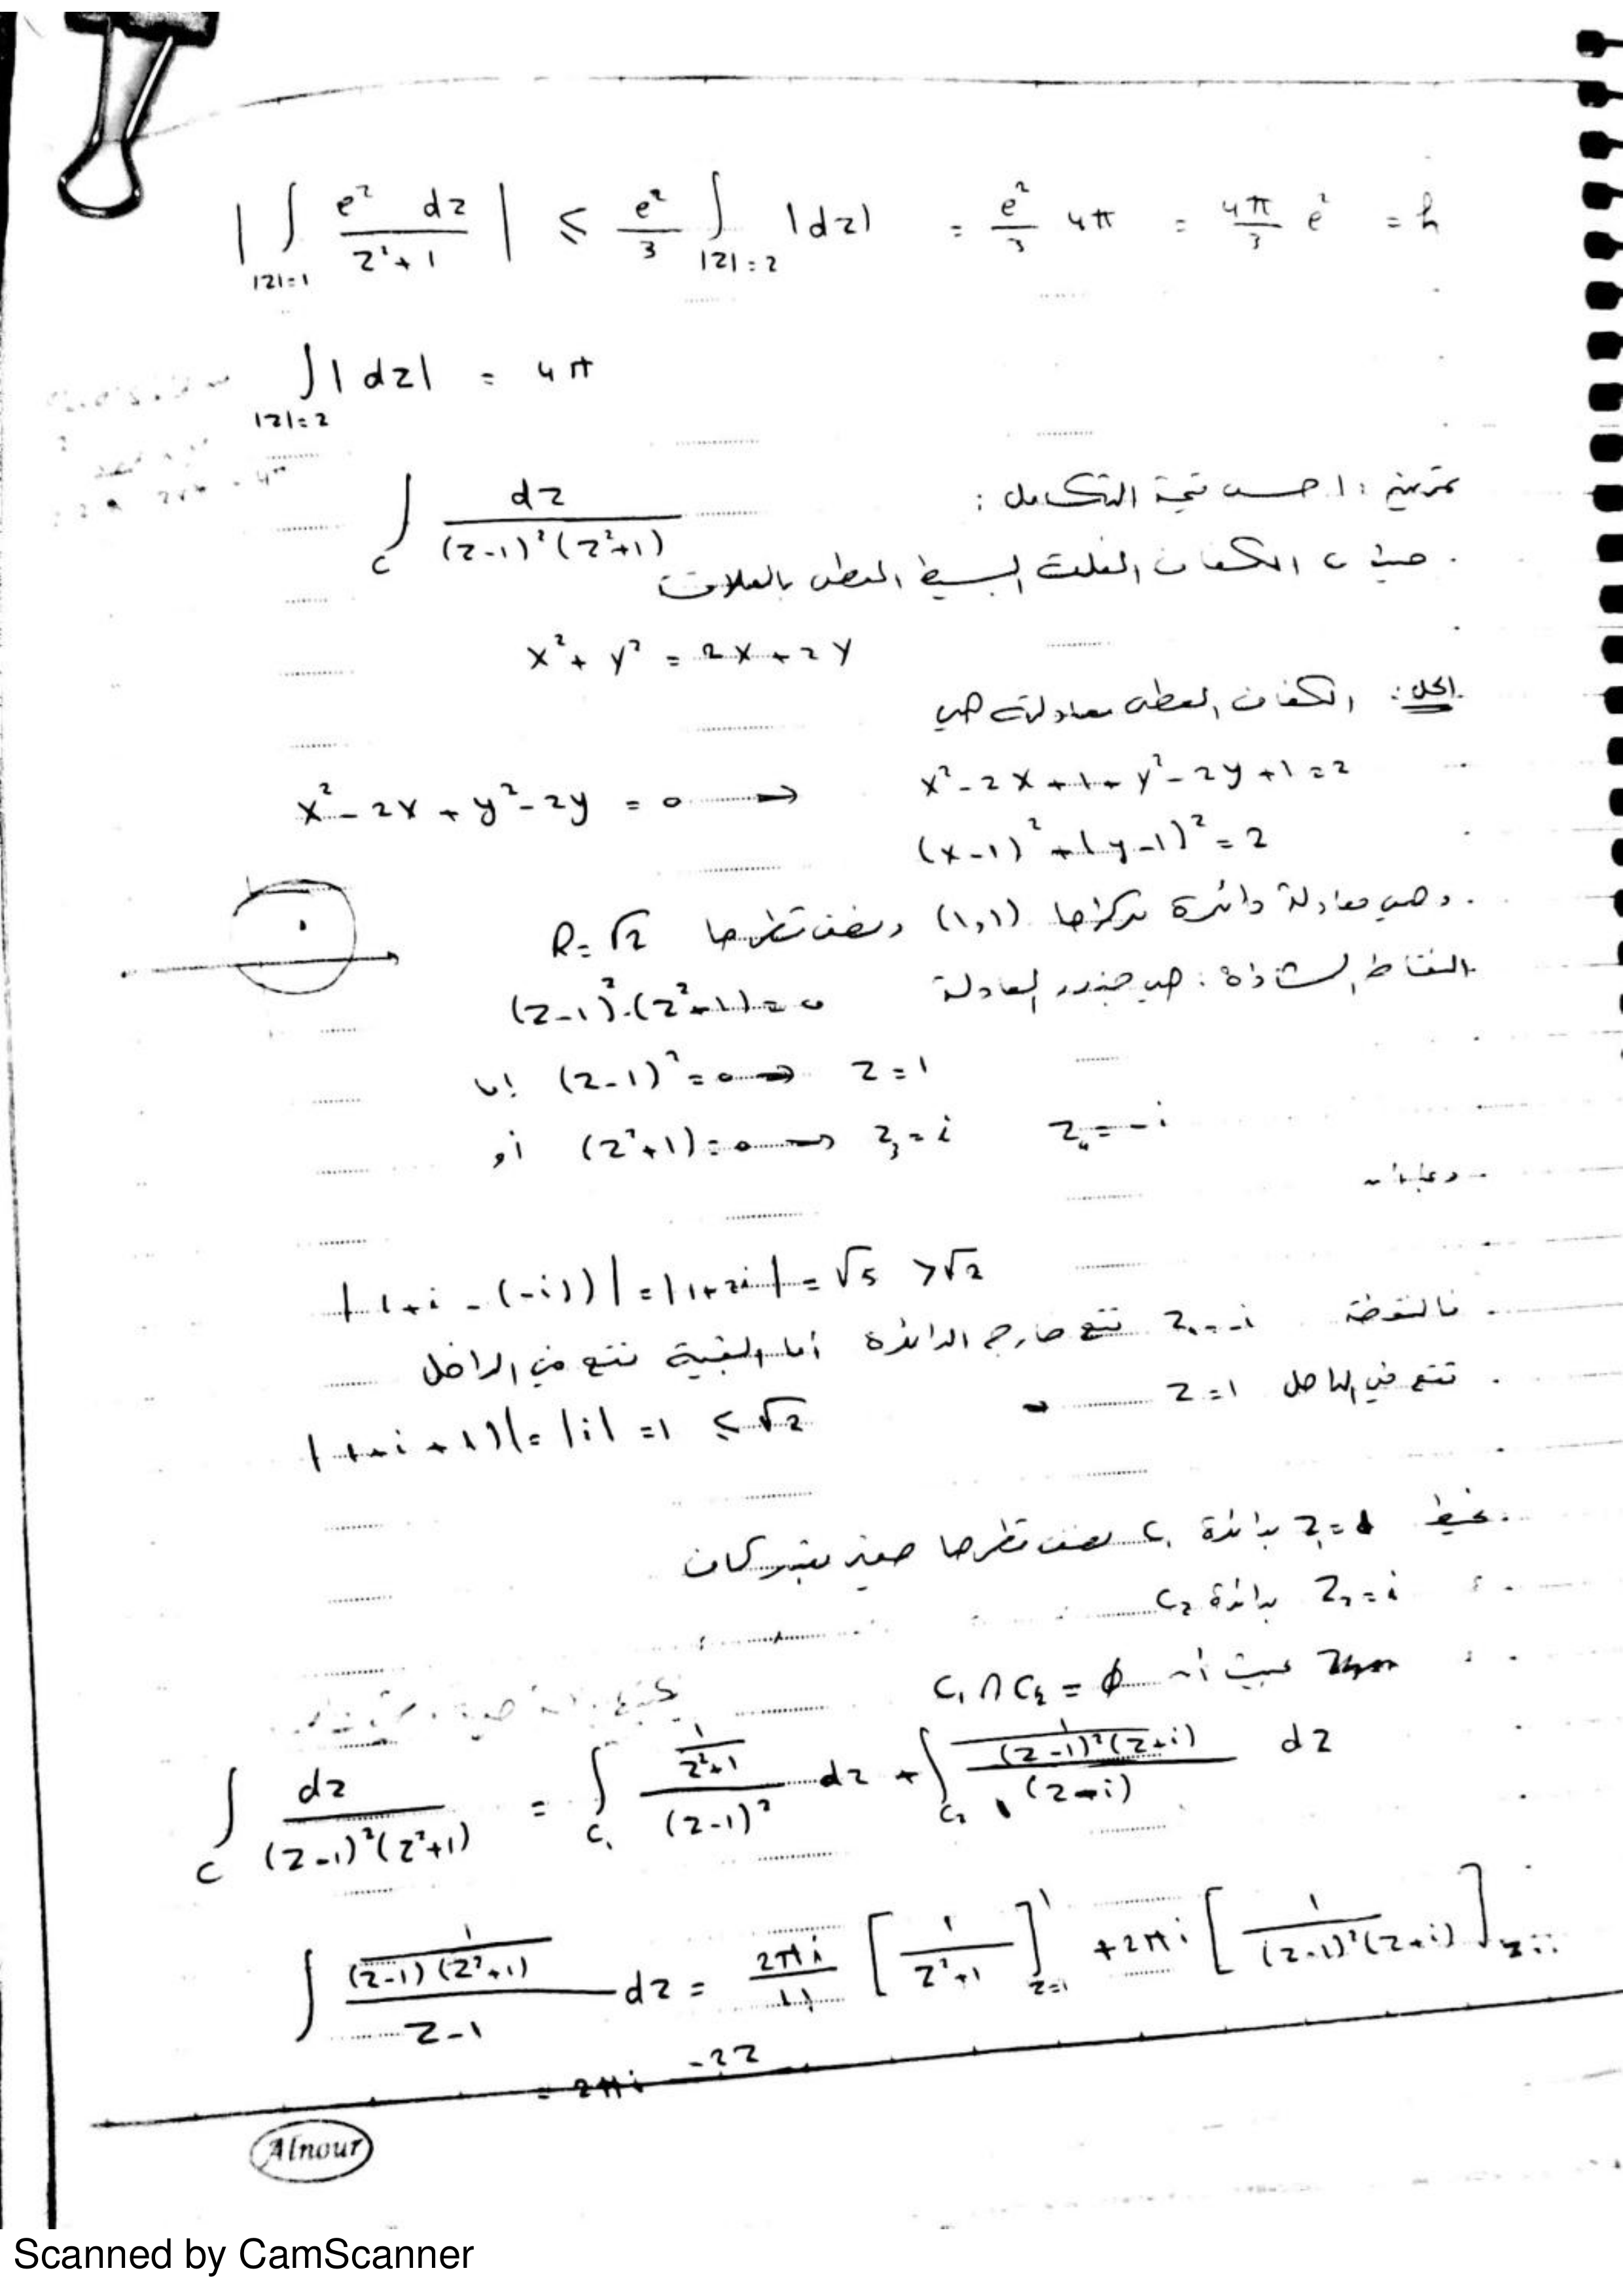 | ∫_{|z|=1} e² dz / (z²+1) | ≤ e²/3 ∫_{|z|=2} |dz| = e²/3 4π = 4π/3 e² = h
∫_{|z|=2} |dz| = 4π
تمرين : احسب قيمة التكامل : ∫_C dz / ((z-1)²(z²+1))
حيث C الكفاف المغلق البسيط المعطى بالعلاقة
x² + y² = 2x + 2y
الحل : الكفاف المعطى معادلته هي
x² - 2x + y² - 2y = 0 → x² - 2x + 1 + y² - 2y + 1 = 2
(x-1)² + (y-1)² = 2
وهي معادلة دائرة مركزها (1,1) ونصف قطرها R = √2
النقاط الشاذة : هي جذور المعادلة (z-1)².(z²+1) = 0
إما (z-1)² = 0 ⇒ z = 1
أو (z²+1) = 0 → z₃ = i z₄ = -i
وبما أن
|1+i - (-i)| = |1+2i| = √5 > √2
فالنقطة z = -i تقع خارج الدائرة أما البقية تقع في الداخل
z = 1 تقع في الداخل
|1+i+1)| = |i| = 1 ≤ √2
نحيط z₁ = 1 بدائرة C₁ نصف قطرها صغير بقدر كاف
z₂ = i بدائرة C₂
بحيث أن C₁ ∩ C₂ = ϕ
∫_C dz / ((z-1)²(z²+1)) = ∫_{C₁} (1/(z²+1)) / (z-1)² dz + ∫_{C₂} (1/((z-1)²(z+i))) / (z-i) dz
∫ (1/((z-1)(z²+1))) / (z-1) dz = 2πi/1! [1/(z²+1)]'_{z=1} + 2πi [1/((z-1)²(z+i))]_{z=i}
= 2πi -2z
Alnour
Scanned by CamScanner